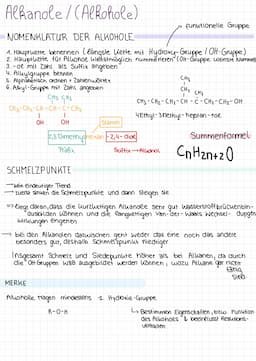 Alkanole / (Alkohole)
funktionelle Gruppe
NOMENKLATUR DER ALKOHOLE
1. Hauptkette benennen (längste Kette mit Hydroxy-Gruppe / OH-Gruppe)
2. Hauptkette für Alkohol kleinstmöglich nummerieren (OH-Gruppe kleinste Nummer)
3. -ol mit Zahl als Suffix angeben
4. Alkylgruppe benennen
5. Alphabetisch ordnen + Zahlenwörter
6. Alkyl-Gruppe mit Zahl angeben
CH3 CH3
OH OH
Stamm
2,3 Dimethyl pentan -2,4-diol
Präfix
Suffix → Alkohol
CH3
CH2
CH3
Summenformel
CnH2n+2O
SCHMELZPUNKTE
→ kein eindeutiger Trend
→ zuerst sinken die Schmelzpunkte und dann steigen sie
→ liegt daran, dass die kurzkettigen Alkanole sehr gut Wasserstoffbrücken
ausbilden können und die langkettigen Van-der-Waals Wechsel-
wirkungen eingehen
→ bei den Alkanolen dazwischen geht weder das eine noch das andere
besonders gut, deshalb Schmelzpunkt niedriger
Insgesamt Schmelz und Siedepunkte höher als bei Alkanen, da durch
die OH-Gruppen WBB ausgebildet werden können, wozu Alkane gar nicht
fähig
sind
MERKE
Alkohole tragen mindestens 1 Hydroxy-Gruppe
R-O-H
Bestimmen Eigenschaften, bzw. Funktion
des Alkohols & beeinflusst Reaktions-
verhalten